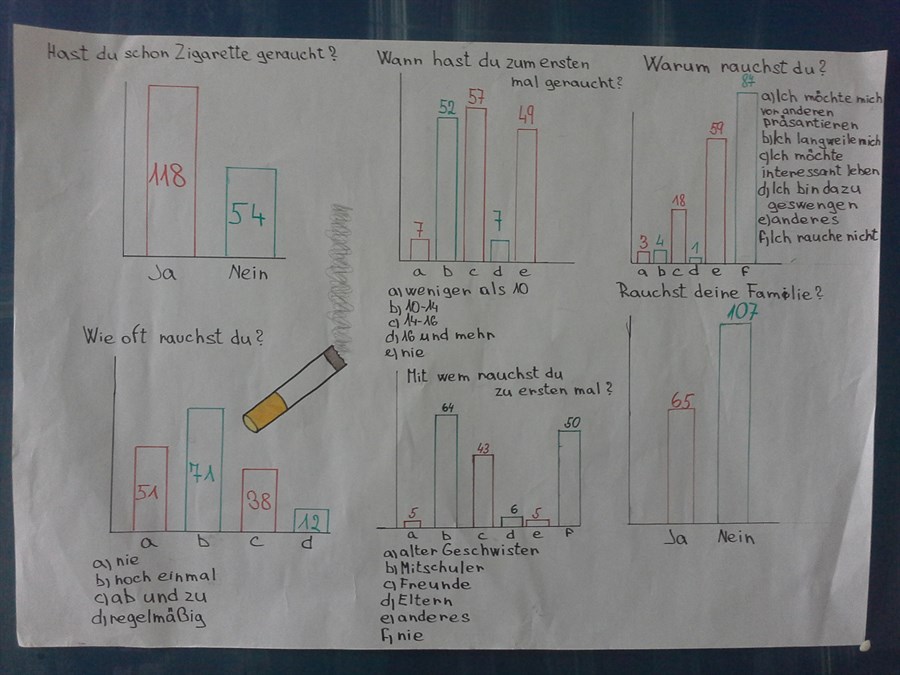 Hast du schon Zigarette geraucht?
118
54
Ja Nein
Wann hast du zum ersten
mal geraucht?
7 52 57 7 49
a b c d e
a) weniger als 10
b) 10-14
c) 14-16
d) 16 und mehr
e) nie
Warum rauchst du?
3 4 18 1 59 87
a b c d e f
a) Ich möchte mich
vor anderen
präsantieren
b) Ich langweile mich
c) Ich möchte
interessant leben
d) Ich bin dazu
geswengen
e) anderes
f) Ich rauche nicht
Wie oft rauchst du?
51 71 38 12
a b c d
a) nie
b) noch einmal
c) ab und zu
d) regelmäßig
Mit wem rauchst du
zu ersten mal?
5 64 43 6 5 50
a b c d e f
a) alter Geschwisten
b) Mitschuler
c) Freunde
d) Eltern
e) anderes
f) nie
Rauchst deine Familie?
65 107
Ja Nein